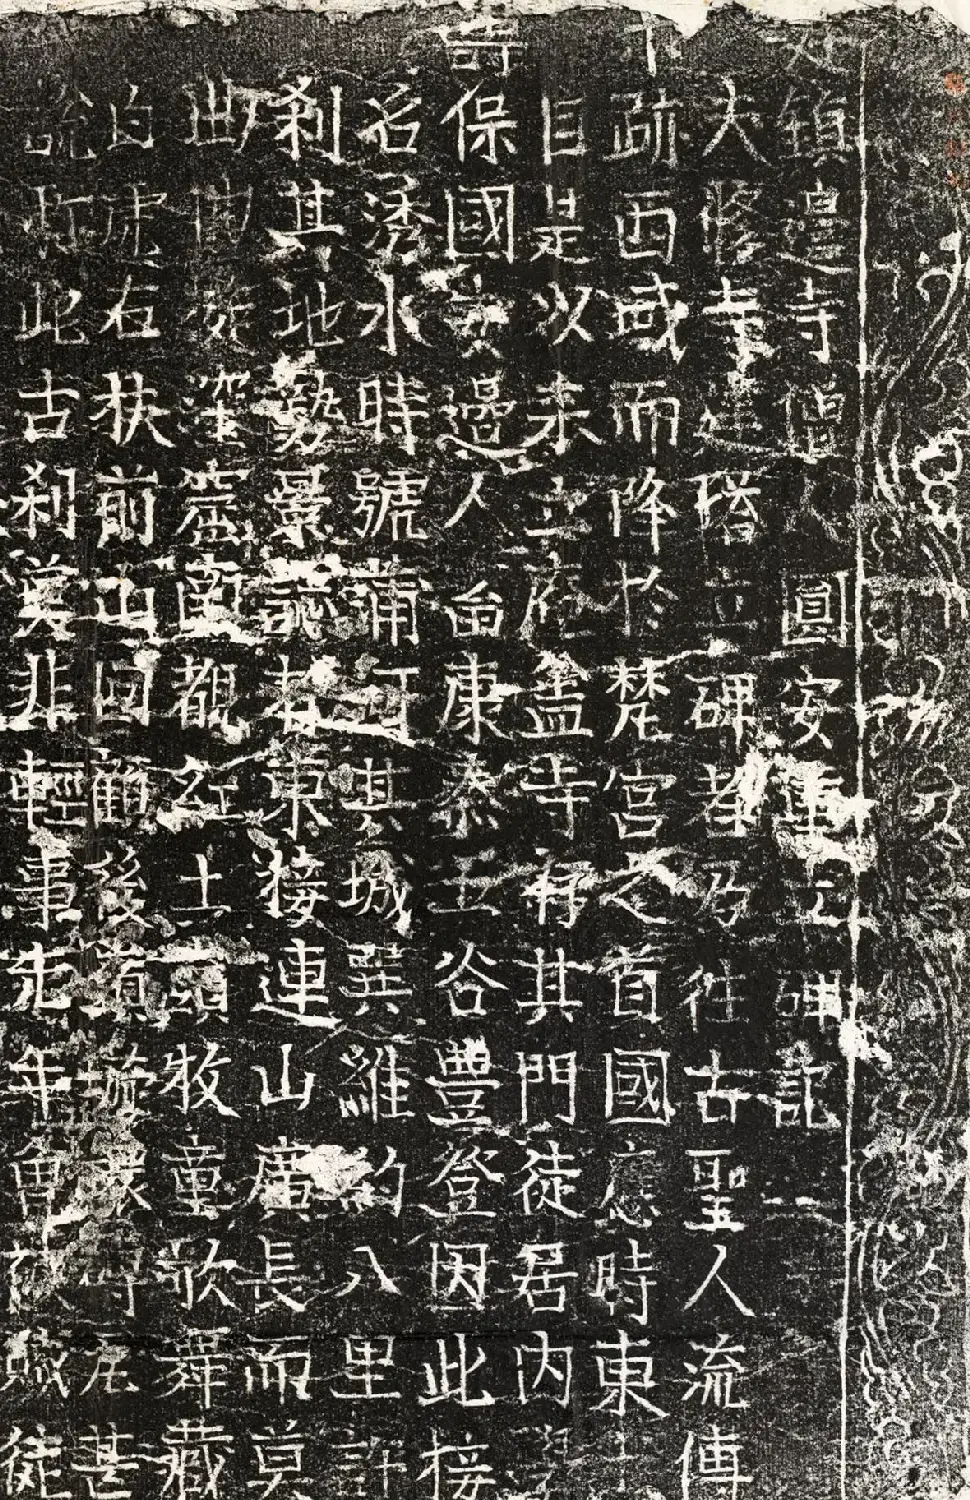 鎮邊寺僧人圓安重立碑記
大修寺建塔立碑者乃往古聖人流傳
疏西域而降於梵宮之首國應時東
目是以來立蓋寺存其門徒居内
壽保國安邊人康泰五谷豐登因此接
名透水時號蒲河其城巽維約八里許
刹其地勢景誌者東接連山廣長而莫
幽從深窟南觀紅土頭牧童歌舞藏
白虎右扶前山回顧後嶺甚
說此古刹非輕事先年曾被賊徒